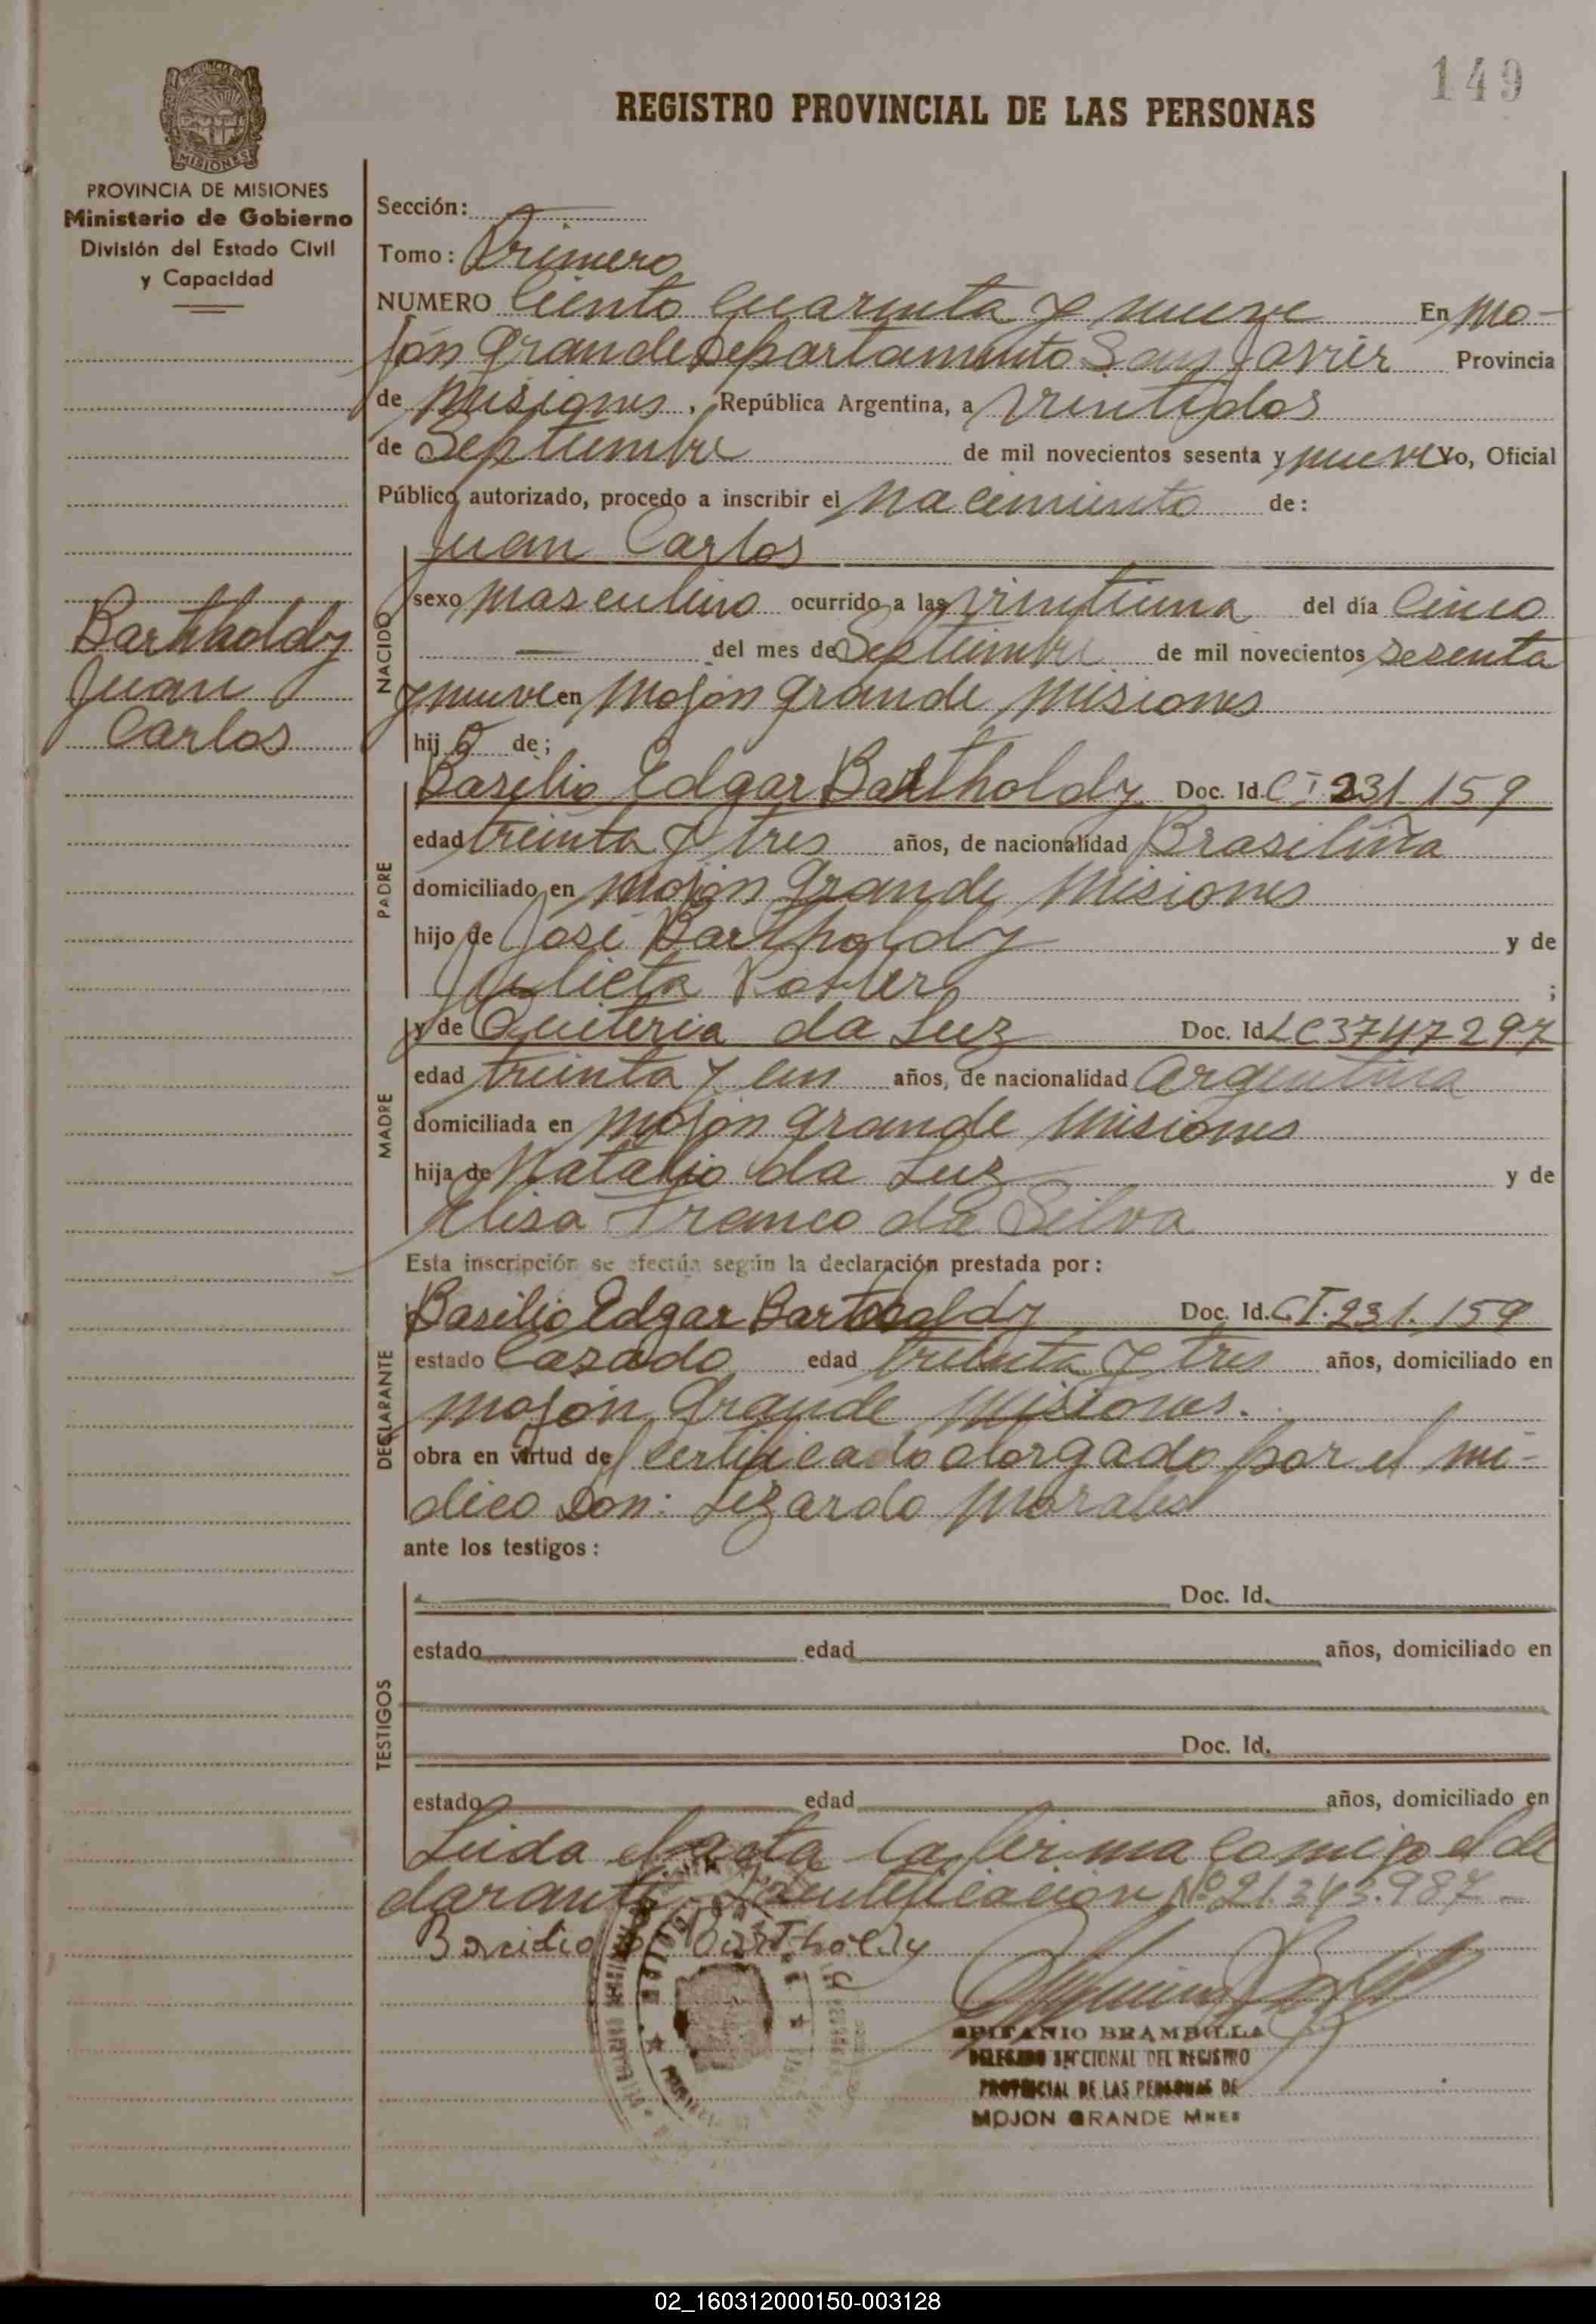 149
REGISTRO PROVINCIAL DE LAS PERSONAS
MISIONES
PROVINCIA DE MISIONES
Ministerio de Gobierno
División del Estado Civil
y Capacidad
Sección:
Tomo: Primero
NUMERO Ciento Cuarenta y nueve En Mo-
jón Grande Departamento San Javier Provincia
de Misiones, República Argentina, a veintidos
de Septiembre de mil novecientos sesenta y nueve Yo, Oficial
Público autorizado, procedo a inscribir el nacimiento de:
Juan Carlos
Bartholdy
Juan
Carlos
NACIDO
sexo masculino ocurrido a las veintiuna del día Cinco
— del mes de Septiembre de mil novecientos sesenta
y nueve en Mojón Grande, Misiones
hijo de;
PADRE
Basilio Edgar Bartholdy Doc. Id. CI 231 159
edad treinta y tres años, de nacionalidad Brasilera
domiciliado en Mojón Grande Misiones
hijo de José Bartholdy y de
Julieta ;
MADRE
y de Quiteria da Luz Doc. Id LC 3747297
edad treinta y un años, de nacionalidad Argentina
domiciliada en Mojón Grande Misiones
hija de Natalio da Luz y de
Elisa Franco da Silva
Esta inscripción se efectúa según la declaración prestada por:
DECLARANTE
Basilio Edgar Bartholdy Doc. Id. CI. 231.159
estado Casado edad treinta y tres años, domiciliado en
Mojón Grande Misiones.
obra en virtud de certificado otorgado por el mé-
dico Don: Lizardo Morales
ante los testigos:
TESTIGOS
Doc. Id.
estado edad años, domiciliado en
Doc. Id.
estado edad años, domiciliado en
Leida el acta la firma comigo el de
clarante. Identificación Nº 21.343.987-
Bartholdy
EPIFANIO BRAMBILLA
DELEGADO SECCIONAL DEL REGISTRO
PROVINCIAL DE LAS PERSONAS DE
MOJON GRANDE Mnes
02_160312000150-003128